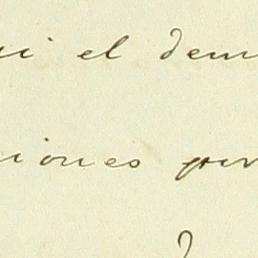 ni el dem
iones per